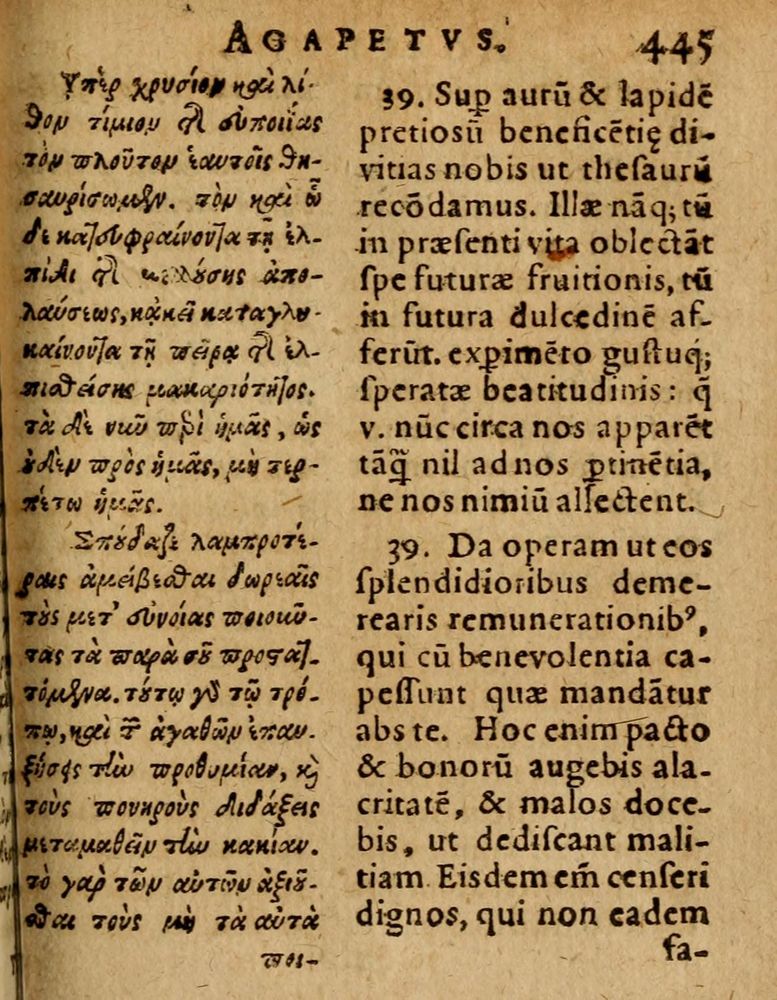 AGAPETVS.
445
Ὑπὲρ χρυσίον καὶ λί-
θον τίμιον τῆς εὐποιίας
τὸν πλοῦτον ἑαυτοῖς θη-
σαυρίσωμεν. τὸν καὶ ὧ
δε κατευφραίνοντα τῇ ἐλ-
πίδι τῆς μελλούσης ἀπο-
λαύσεως, κἀκεῖ καταγλυ-
καίνοντα τῇ πείρᾳ τῆς ἐλ-
πισθείσης μακαριότητος.
τὰ δὲ νῦν περὶ ἡμᾶς, ὡς
οὐδὲν πρὸς ἡμᾶς, μὴ τερ-
πέτω ἡμᾶς.
Σπούδαζε λαμπροτέ-
ραις ἀμείβεσθαι δωρεαῖς
τοὺς μετ' εὐνοίας ποιοῦν-
τας τὰ παρὰ σοῦ προστατ-
τόμενα. τούτῳ γὰρ τῷ τρό-
πῳ, καὶ τῶν ἀγαθῶν ἐπαυ-
ξήσεις τὴν προθυμίαν, καὶ
τοὺς πονηροὺς διδάξεις
μεταμαθεῖν τὴν κακίαν.
τὸ γὰρ τῶν αὐτῶν ἀξιοῦ-
σθαι τοὺς μὴ τὰ αὐτὰ
ποι-
39. Sup aurū & lapidē
pretiosū beneficētię di-
vitias nobis ut thesaurū
recōdamus. Illæ nāq; tū
in præsenti vita oblectāt
spe futuræ fruitionis, tū
in futura dulcedinē af-
ferūt. expimēto gustuq;
speratæ beatitudinis: q̄
v. nūc circa nos apparēt
tāq̄ nil ad nos ptinētia,
ne nos nimiū allectent.
39. Da operam ut eos
splendidioribus deme-
rearis remunerationibꝰ,
qui cū benevolentia ca-
pessunt quæ mandātur
abs te. Hoc enim pacto
& bonorū augebis ala-
critatē, & malos doce-
bis, ut dediscant mali-
tiam. Eisdem em̄ censeri
dignos, qui non eadem
fa-